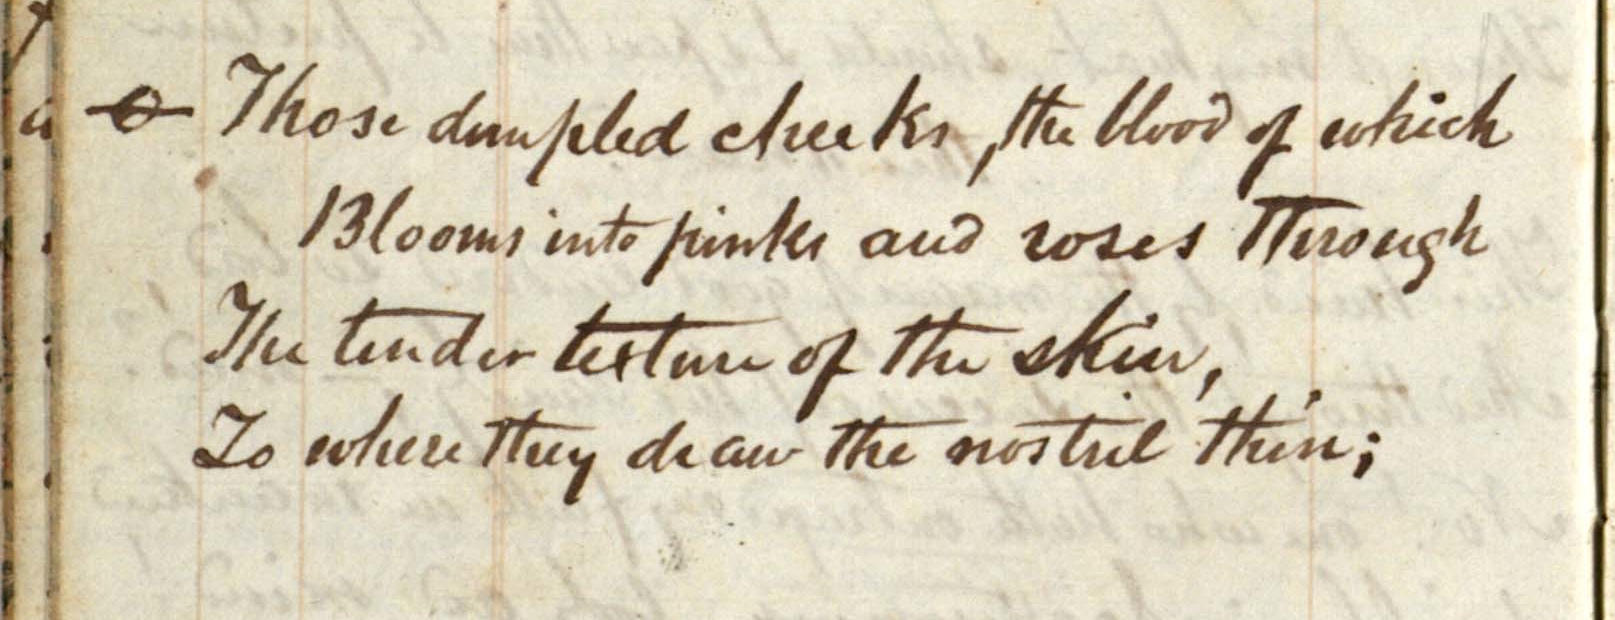 Those dimpled cheeks, the blood of which
Blooms into pinks and roses through
The tender texture of the skin,
To where they draw the nostril thin;